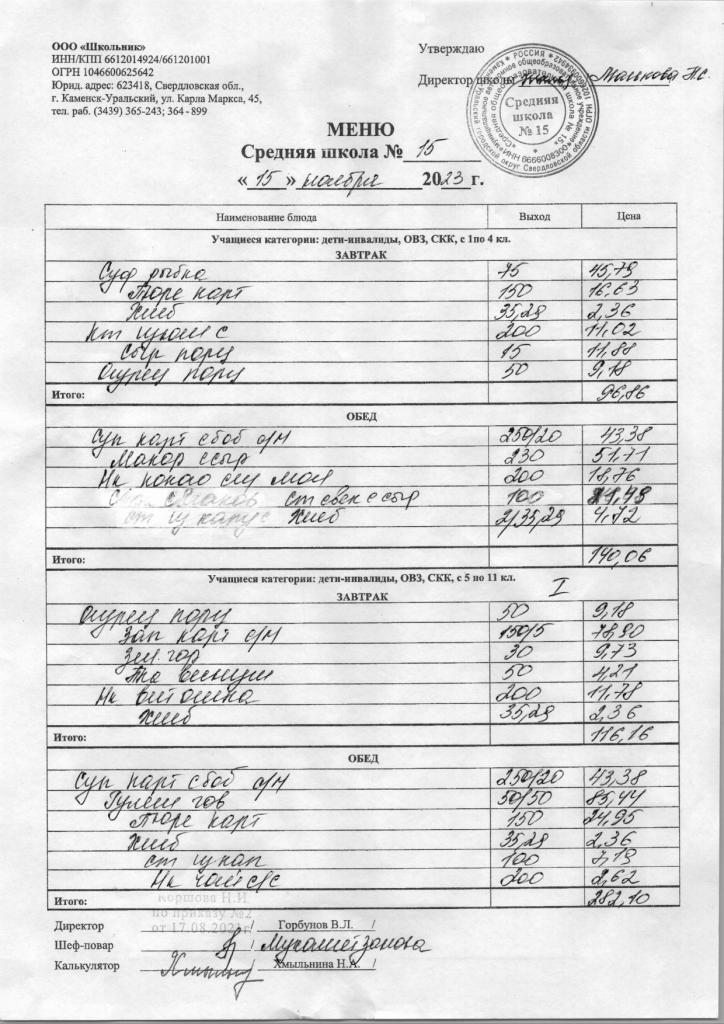 ООО «Школьник»
ИНН/КПП 6612014924/661201001
ОГРН 1046600625642
Юрид. адрес: 623418, Свердловская обл.,
г. Каменск-Уральский, ул. Карла Маркса, 45,
тел. раб. (3439) 365-243; 364-899
Утверждаю
Директор школы Малькова Н.С.
Средняя
школа
№ 15
МЕНЮ
Средняя школа № 15
« 15 » ноября 2023 г.
Наименование блюда Выход Цена
Учащиеся категории: дети-инвалиды, ОВЗ, СКК, с 1по 4 кл.
ЗАВТРАК
Суф рыбка 75 45,79
Пюре карт 150 16,63
Хлеб 35,29 2,36
200 11,02
Сыр порц 15 11,88
Огурец порц 50 9,18
Итого: 96,86
ОБЕД
Суп карт с боб с/м 250/20 43,38
Макар с сыр 230 51,71
Нк какао 200 18,76
ст свек с сыр 100 21,48
Хлеб 2/35,29 4,72
Итого: 140,06
Учащиеся категории: дети-инвалиды, ОВЗ, СКК, с 5 по 11 кл. I
ЗАВТРАК
Огурец порц 50 9,18
Зап карт с/м 150/5 78,90
Зел. гор 30 9,73
50 4,21
Нк витошка 200 11,78
Хлеб 35,29 2,36
Итого: 116,16
ОБЕД
Суп карт с боб с/м 250/20 43,38
Гуляш гов 50/50 85,44
Пюре карт 150 24,95
Хлеб 35,29 2,36
ст из кап 100 7,19
Нк чай с/с 200 2,62
Итого: 282,10
Коршова Н.И.
по приказу №2
от 17.08.2021г
Директор / Горбунов В.Л. /
Шеф-повар / Мухаметзянова
Калькулятор / Хмыльнина Н.А. /